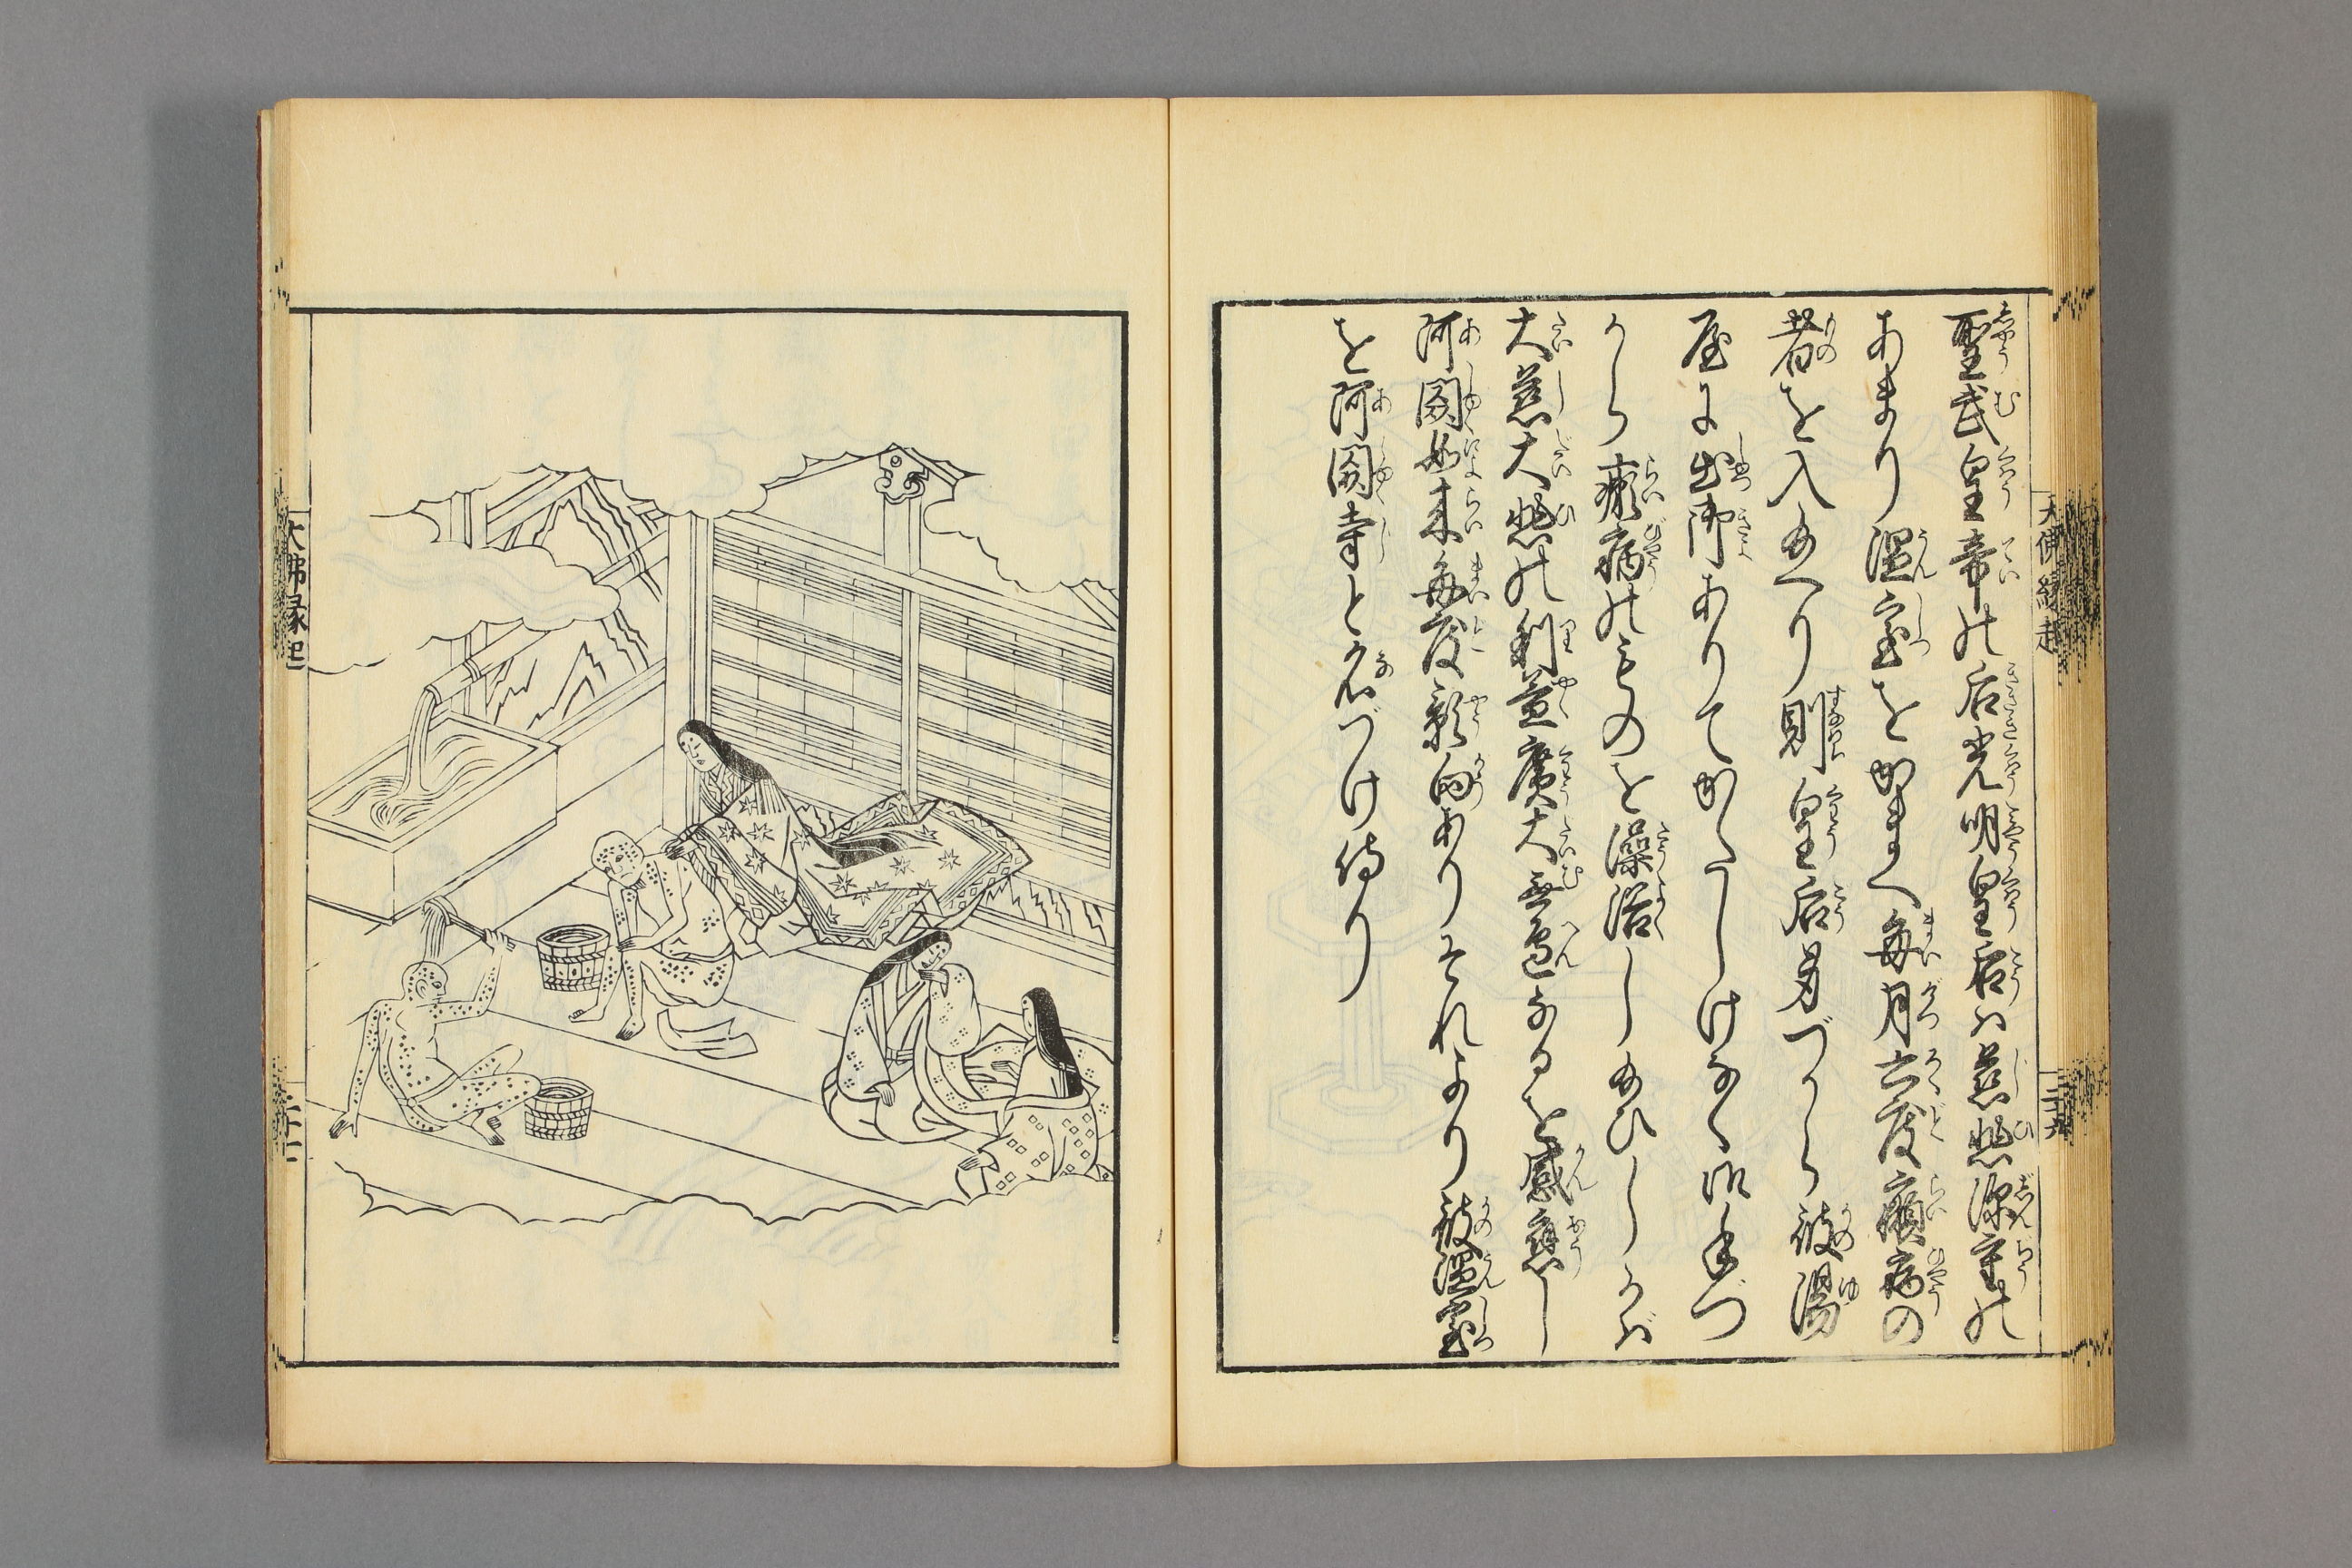 聖武皇帝の后光明皇后ハ慈悲深重の
あまり温室をかまへ毎月六度癩病の
者を入給へり則皇后身づから彼湯
屋に出御ありてかたじけなく御手づ
から癩病のものを澡浴し給ひしかば
大慈大悲の利益廣大無邊なるを感應し
阿閦如来毎度影向ありそれより彼温室
を阿閦寺と名づけ侍り
大佛縁起
大佛縁起